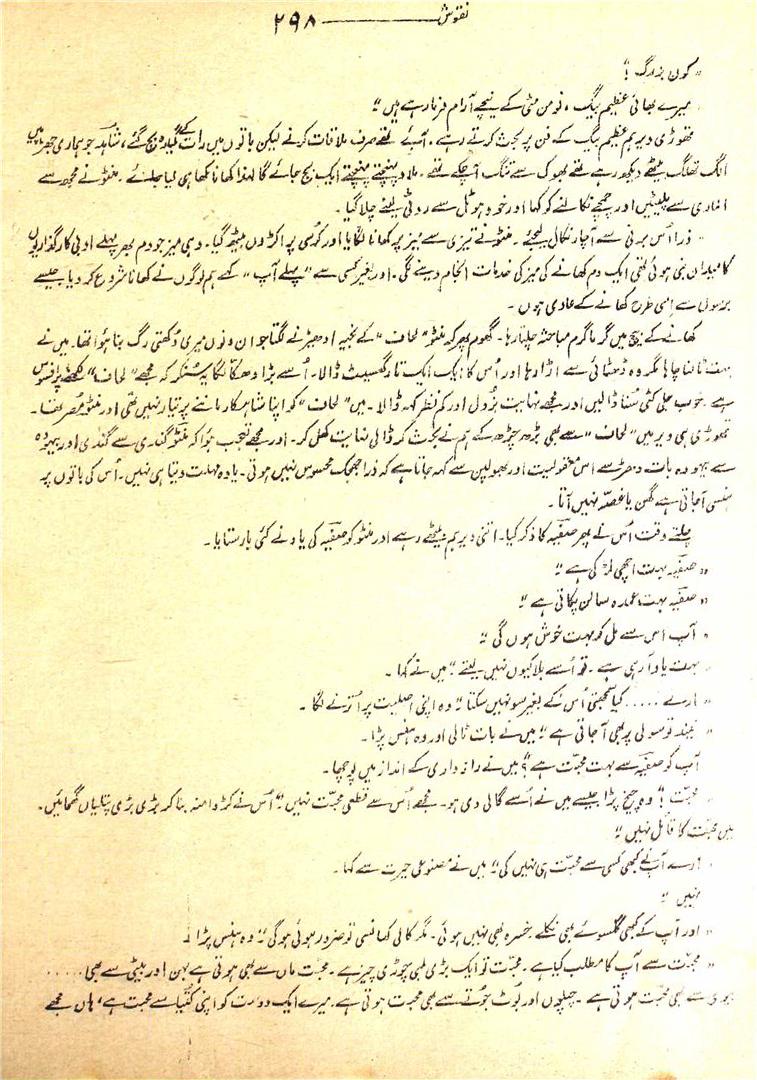 نقوش ـــــــــ ۲۹۸
" کون بزرگ ! "
" میرے بھائی عظیم بیگ ، نو من مٹی کے نیچے آرام فرما رہے ہیں "
تھوڑی دیر ہم عظیم بیگ کے فن پر بحث کرتے رہے ۔ آئے تھے صرف ملاقات کرنے لیکن باتوں میں رات کے گیارہ بج گئے ، شاہد جو ہماری جھڑپیں
الگ تھلگ بیٹھے دیکھ رہے تھے بھوک سے تنگ آ چکے تھے ۔ ملاڈ پہنچتے پہنچتے ایک بج جائے گا لہٰذا کھانا کھا ہی لیا جائے ۔ منٹو نے مجھ سے
الماری سے پلیٹیں اور چمچے نکالنے کو کہا اور خود ہوٹل سے روٹی لینے چلا گیا ۔
" ذرا اس برنی سے آچار نکال لیجئے ۔ منٹو نے تیزی سے میز پر کھانا لگایا اور کرسی پر اکڑوں بیٹھ گیا ۔ وہی میز جو دم بھر پہلے ادبی کارگذاریوں
کا میدان بنی ہوئی تھی ایک دم کھانے کی میز کی خدمات انجام دینے لگی ۔ اور بغیر کسی سے " پہلے آپ " کہے ہم لوگوں نے کھانا شروع کر دیا جیسے
برسوں سے اسی طرح کھانے کے عادی ہوں ۔
کھانے کے بیچ میں گرما گرم مباحثہ چلتا رہا ۔ گھوم پھر کر منٹو " لحاف " کے بخیے ادھیڑنے لگتا جو ان دنوں میری دُکھتی رگ بنا ہوا تھا ۔ میں نے
بہت ٹالنا چاہا مگر وہ ڈھٹائی سے اڑا رہا اور اُس کا ایک ایک تار گھسیٹ ڈالا ۔ اُسے بڑا دھکا لگا یہ سُنکر کہ مجھے " لحاف " لکھنے پر افسوس
ہے ۔ خوب جلی کٹی سُنا ڈالیں اور مجھے نہایت بزدل اور کم نظر کہہ ڈالا ۔ میں " لحاف " کو اپنا شاہکار ماننے پر تیار نہیں تھی اور منٹو مصر تھا ۔
تھوڑی ہی دیر میں " لحاف " سے بھی بڑھ چڑھ کے ہم نے بحث کر ڈالی نہایت کھل کر ۔ اور مجھے تعجب ہوا کہ منٹو گندی سے گندی اور بیہودہ
سے بیہودہ بات دھڑے سے اس معقولیت اور بھولپن سے کہہ جاتا ہے کہ ذرا جھجک محسوس نہیں ہوتی ۔ یا وہ مہلت دیتا ہی نہیں ۔ اُس کی باتوں پر
ہنسی آجاتی ہے گھن یا غصّہ نہیں آتا ۔
چلتے وقت اُس نے پھر صفیہ کا ذکر کیا ۔ اتنی دیر ہم بیٹھے رہے اور منٹو کو صفیہ کی یاد نے کئی بار ستایا ۔
" صفیہ بہت اچھی لڑکی ہے "
" صفیہ بہت عمدہ سالن پکاتی ہے "
" آپ اس سے مل کر بہت خوش ہوں گی "
" بہت یاد آرہی ہے ۔ تو اُسے بلا کیوں نہیں لیتے " میں نے کہا ۔
" ارے ..... کیا سمجھتی اُس کے بغیر سو نہیں سکتا " وہ اپنی اصلیت پر اُترنے لگا ۔
" نیند تو سولی پر بھی آجاتی ہے " میں نے بات ٹالی اور وہ ہنس پڑا ۔
آپ کو صفیہ سے بہت محبّت ہے ؟ میں نے راز داری کے انداز میں پوچھا ۔
" محبّت ! " وہ چیخ پڑا جیسے میں نے اُسے گالی دی ہو ۔ مجھے اُس سے قطعی محبّت نہیں " اُس نے کڑوا منہ بنا کر بڑی بڑی پتلیاں گھمائیں ۔
میں محبّت کا قائل نہیں "
" ارے آپ نے کبھی کسی سے محبّت ہی نہیں کی " میں نے مصنوعی حیرت سے کہا ۔
" نہیں "
" اور آپ کے کبھی گلسوئے بھی نکلے خسرہ بھی نہیں ہوئی ۔ مگر کالی کھانسی تو ضرور ہوئی ہوگی " وہ ہنس پڑا ۔
" محبّت سے آپ کا مطلب کیا ہے ۔ محبّت تو ایک بڑی لمبی چوڑی چیز ہے ۔ محبت ماں سے بھی ہوتی ہے بہن اور بیٹی سے بھی .....
بیوی سے بھی محبّت ہوتی ہے ۔ چپلوں اور بُوٹ جوتے سے بھی محبت ہوتی ہے ۔ میرے ایک دوست کو اپنی کُتیا سے محبت ہے ، ہاں مجھے